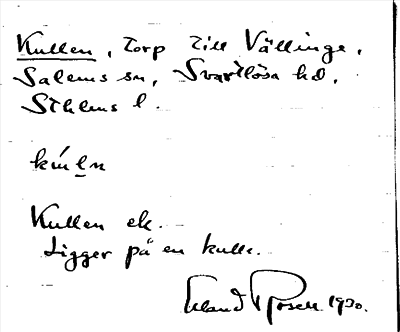 Kullen, torp till Vällinge,
Salems sn, Svartlösa hd,
Sthlms l.
Kullen ek.
Ligger på en kulle.
Erland Rosell 1930.